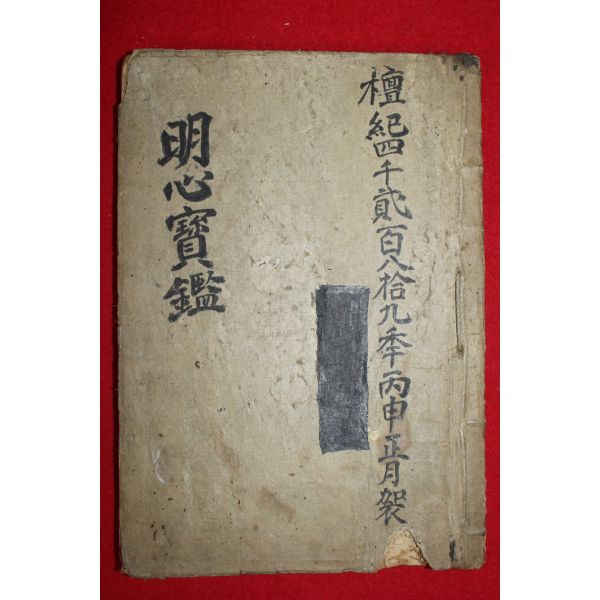 檀紀四千貳百八拾九秊丙申正月
明心寶鑑